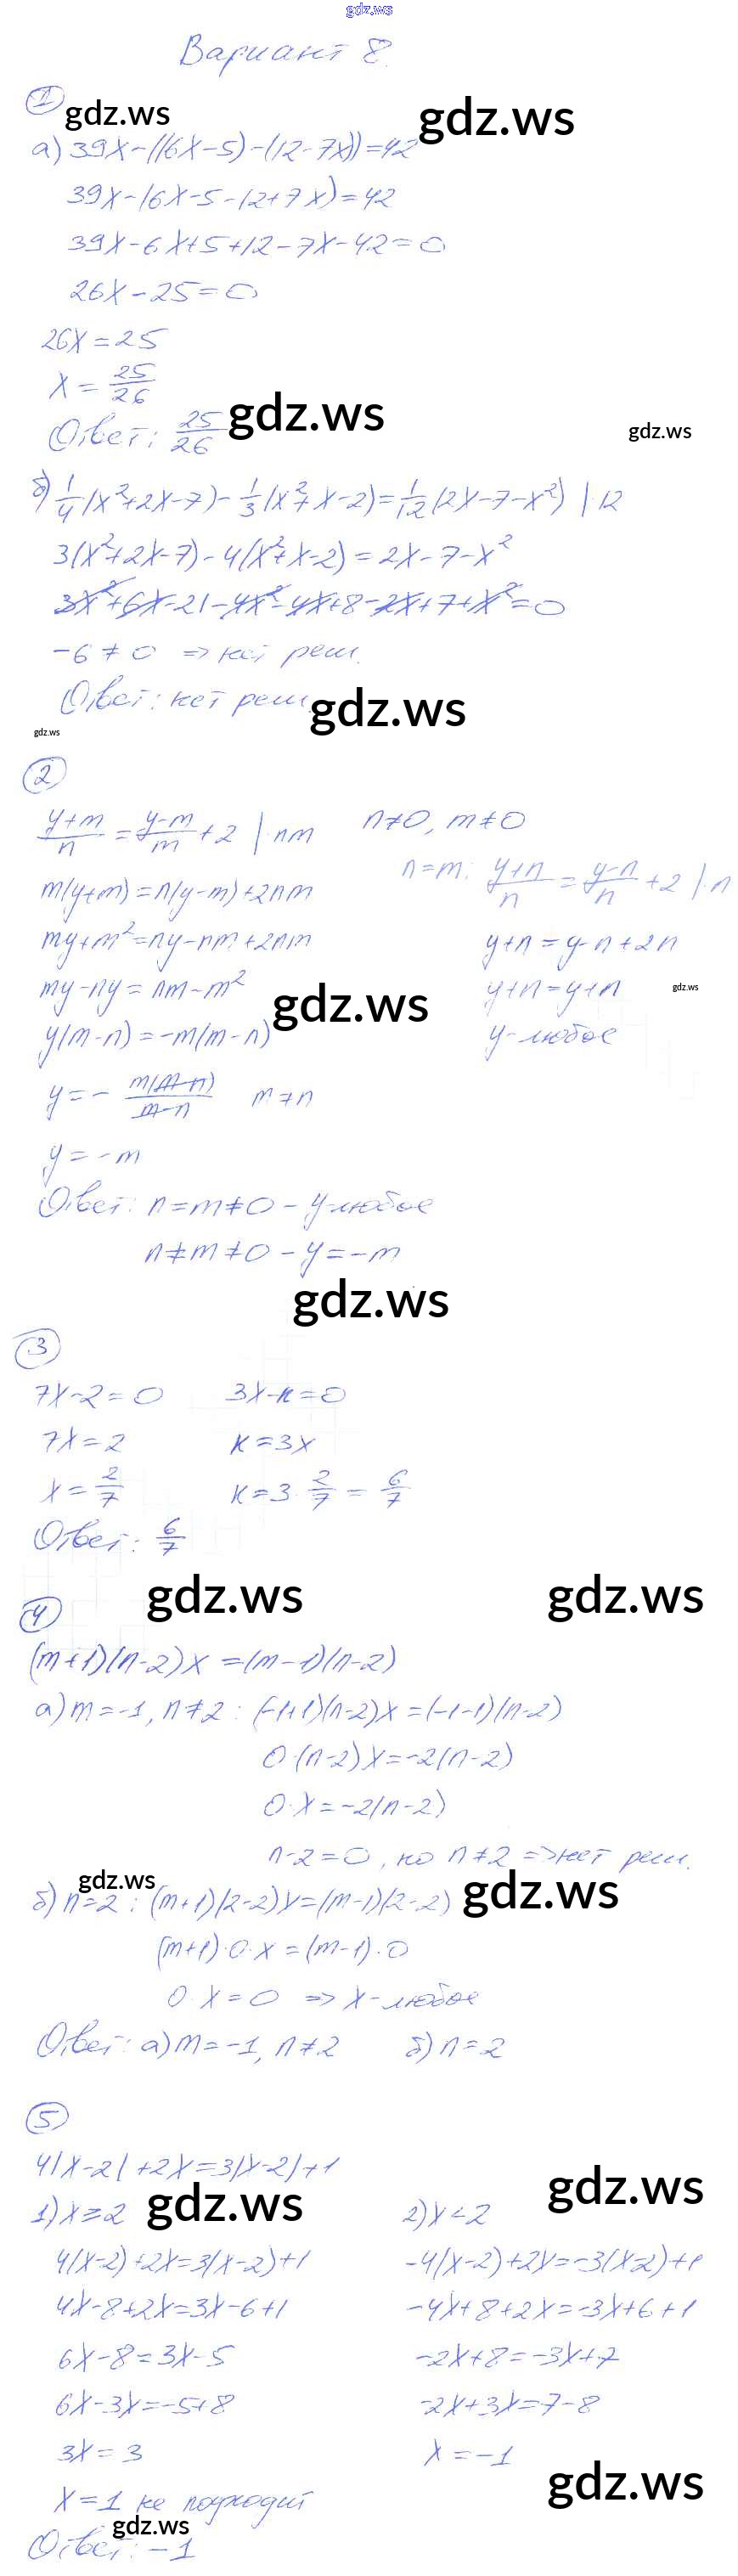 gdz.ws
Вариант 8.
1
gdz.ws
gdz.ws
а) 39x-((6x-5)-(12-7x))=42
39x-(6x-5-12+7x)=42
39x-6x+5+12-7x-42=0
26x-25=0
26x=25
x=25/26
Ответ: 25/26
gdz.ws
gdz.ws
б) 1/4(x²+2x-7)-1/3(x²+x-2)=1/12(2x-7-x²) |·12
3(x²+2x-7)-4(x²+x-2)=2x-7-x²
3x²+6x-21-4x²-4x+8-2x+7+x²=0
-6≠0 => нет реш.
Ответ: нет реш.
gdz.ws
gdz.ws
2
(y+m)/n=(y-m)/m+2 |·nm n≠0, m≠0
n=m: (y+n)/n=(y-n)/n+2 |·n
m(y+m)=n(y-m)+2nm
my+m²=ny-nm+2nm y+n=y-n+2n
my-ny=nm-m² y+n=y+n
gdz.ws
gdz.ws
y(m-n)=-m(m-n) y-любое
y=-m(m-n)/(m-n) m≠n
y=-m
Ответ: n=m≠0 - y-любое
n≠m≠0 - y=-m
gdz.ws
3
7x-2=0 3x-к=0
7x=2 к=3x
x=2/7 к=3·2/7=6/7
Ответ: 6/7
gdz.ws
gdz.ws
4
(m+1)(n-2)x=(m-1)(n-2)
а) m=-1, n≠2: (-1+1)(n-2)x=(-1-1)(n-2)
0·(n-2)x=-2(n-2)
0·x=-2(n-2)
n-2=0, но n≠2 => нет реш.
gdz.ws
gdz.ws
б) n=2: (m+1)(2-2)x=(m-1)(2-2)
(m+1)·0·x=(m-1)·0
0·x=0 => x-любое
Ответ: а) m=-1, n≠2 б) n=2
5
4|x-2|+2x=3|x-2|+1
gdz.ws
gdz.ws
1) x≥2 2) x<2
4(x-2)+2x=3(x-2)+1 -4(x-2)+2x=-3(x-2)+1
4x-8+2x=3x-6+1 -4x+8+2x=-3x+6+1
6x-8=3x-5 -2x+8=-3x+7
6x-3x=-5+8 -2x+3x=7-8
3x=3 x=-1
gdz.ws
x=1 не подходит
gdz.ws
Ответ: -1